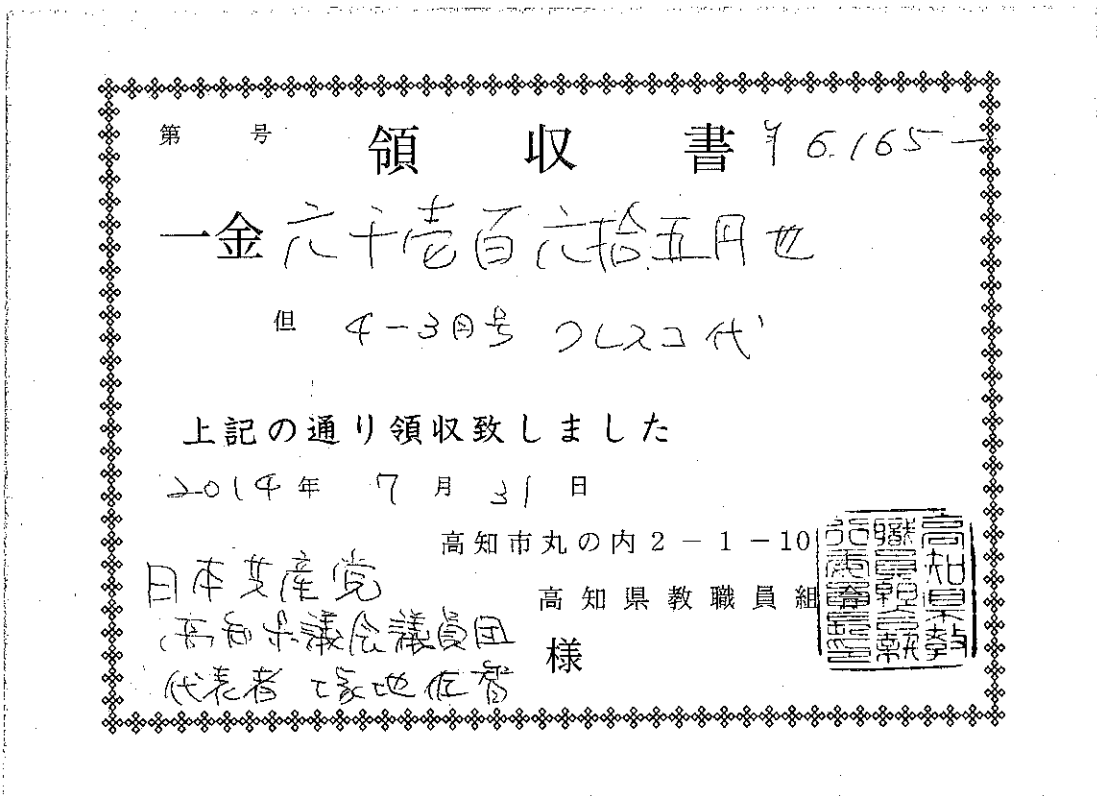 第 号 領収書 ¥6,165-
一金 六千壱百六拾五円也
但 4-3月号 クレスコ代
上記の通り領収致しました
2014年 7月 31日
高知市丸の内2-1-10
高知県教職員組合
日本共産党
高知県議会議員団
代表者 塚地佐智 様